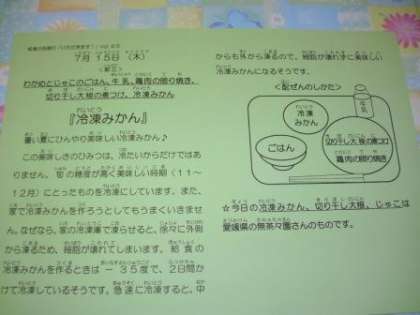 7月15日（木）
＜献立＞
わかめとじゃこのごはん、牛乳、鶏肉の照り焼き、
切り干し大根の煮つけ、冷凍みかん
『冷凍みかん』
暑い夏にひんやり美味しい冷凍みかん♪
この美味しさのひみつは、冷たいからだけではあ
りません。旬の糖度が高く美味しい時期（11～
12月）にとったものを冷凍にしています。また、
家で冷凍みかんを作ろうとしてもうまくいきませ
ん。なぜなら、家の冷凍庫で凍らせると、徐々に外側
から凍るため、細胞が壊れてしまいます。給食の
冷凍みかんを作るときは－35度で、2日間か
けて冷凍しているそうです。急速に冷凍すると、中
からも外から凍るので、細胞が壊れずに美味しい
冷凍みかんになるそうです。
＜配ぜんのしかた＞
冷凍
みかん
牛乳
ごはん
切り干し大根の煮つけ
鶏肉の照り焼き
☆今日の冷凍みかん、切り干し大根、じゃこは
愛媛県の無茶々園さんのものです。